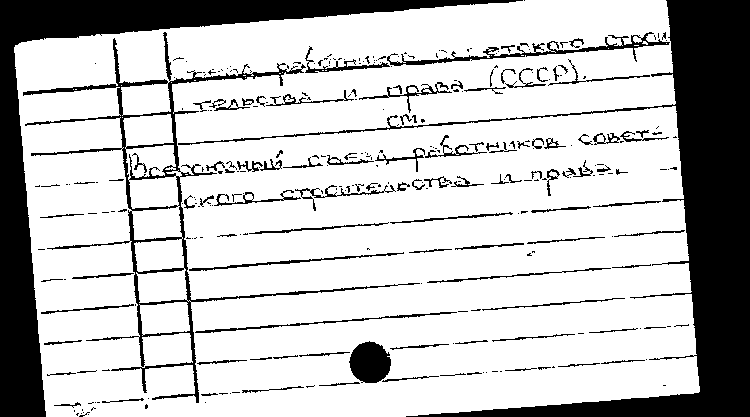 Съезд работников советского строи
тельства и права (СССР).
см.
Всесоюзный съезд работников совет-
ского строительства и права.